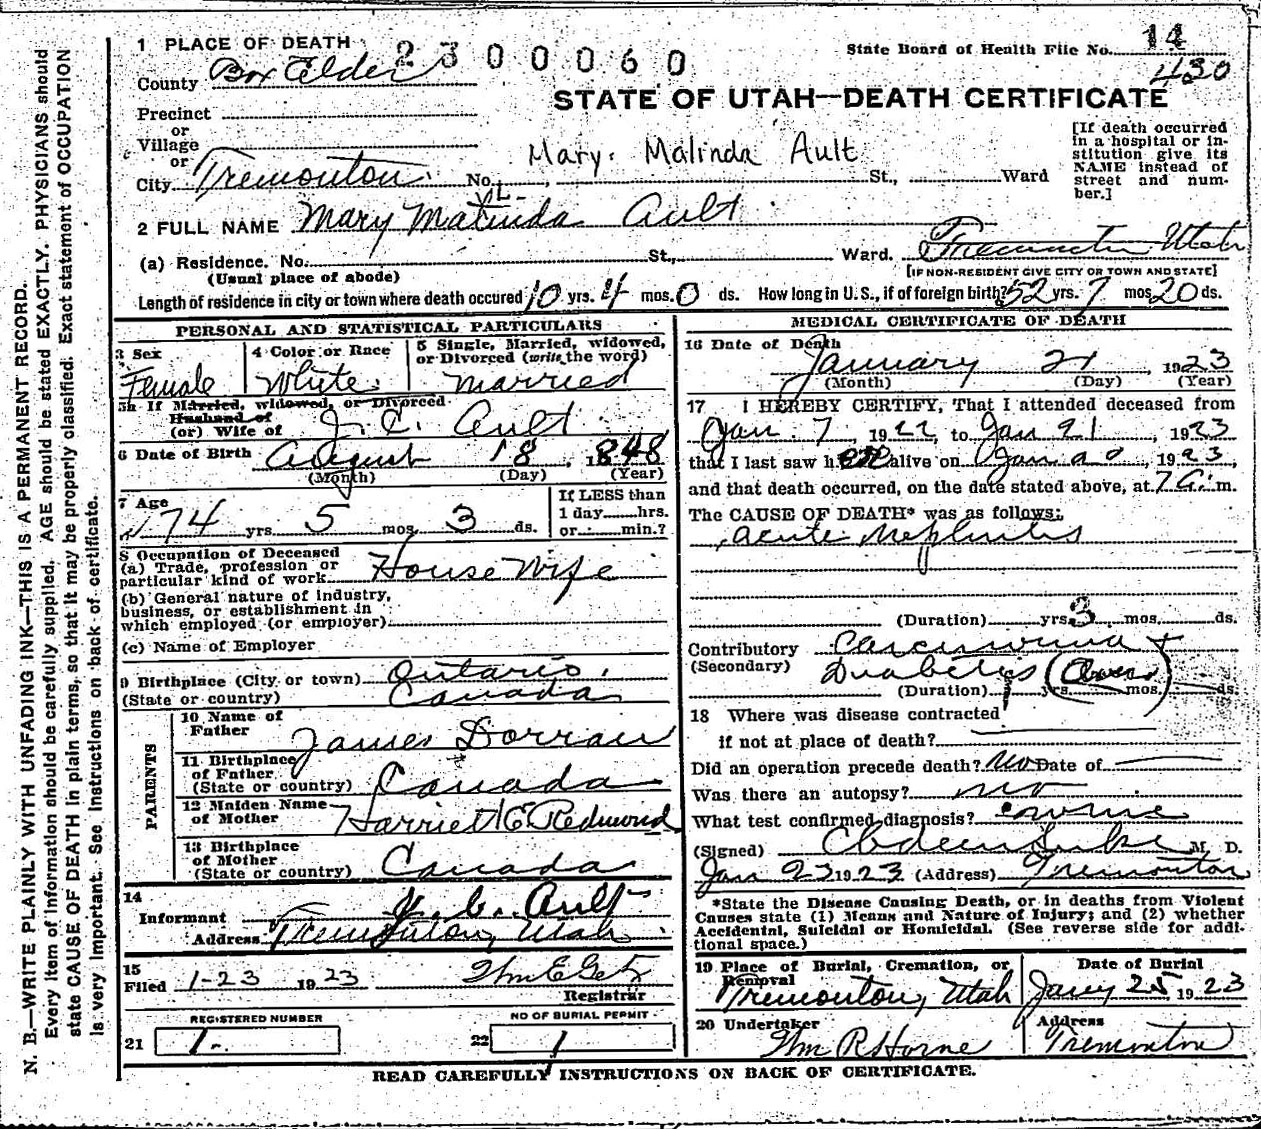 1 PLACE OF DEATH
2300060
State Board of Health File No. 14
430
County Box Elder
STATE OF UTAH—DEATH CERTIFICATE
Precinct
or
Village
or
City Tremonton. No. St., Ward
Mary Malinda Ault
[If death occurred in a hospital or institution give its NAME instead of street and number.]
2 FULL NAME Mary Malinda Ault
(a) Residence. No. St., Ward. Tremonton Utah
(Usual place of abode)
[IF NON-RESIDENT GIVE CITY OR TOWN AND STATE]
Length of residence in city or town where death occured 10 yrs. 4 mos. 0 ds. How long in U.S., if of foreign birth? 52 yrs. 7 mos 20 ds.
PERSONAL AND STATISTICAL PARTICULARS
3 Sex
Female
4 Color or Race
White
5 Single, Married, widowed, or Divorced (write the word)
married
5a If Married, widowed, or Divorced
Husband of
(or) Wife of J. C. Ault
6 Date of Birth August 18, 1848
(Month) (Day) (Year)
7 Age
74 yrs. 5 mos. 3 ds.
If LESS than
1 day hrs.
or min.?
8 Occupation of Deceased
(a) Trade, profession or
particular kind of work House Wife
(b) General nature of industry,
business, or establishment in
which employed (or employer)
(c) Name of Employer
9 Birthplace (City or town) Ontario.
(State or country) Canada
PARENTS
10 Name of
Father James Dorran
11 Birthplace
of Father
(State or country) Canada
12 Maiden Name
of Mother Harriet E. Redmond
13 Birthplace
of Mother
(State or country) Canada
14
Informant J. C. Ault
Address Tremonton, Utah
15
Filed 1-23 1923 Wm E Getz
Registrar
REGISTERED NUMBER
21 1-
NO OF BURIAL PERMIT
22 1
MEDICAL CERTIFICATE OF DEATH
16 Date of Death
January 21, 1923
(Month) (Day) (Year)
17 I HEREBY CERTIFY, That I attended deceased from
Jan. 7, 1922, to Jan 21, 1923
that I last saw her alive on Jan 20, 1923,
and that death occurred, on the date stated above, at 7 a. m.
The CAUSE OF DEATH* was as follows:
acute nephritis
(Duration) yrs. 3 mos. ds.
Contributory Carcinoma +
(Secondary) Diabetis (Over)
(Duration) yrs. mos. ds.
18 Where was disease contracted
if not at place of death?
Did an operation precede death? No Date of
Was there an autopsy? no
What test confirmed diagnosis? urine
(Signed) M. D.
Jan 22 1923 (Address) Tremonton
*State the Disease Causing Death, or in deaths from Violent
Causes state (1) Means and Nature of Injury; and (2) whether
Accidental, Suicidal or Homicidal. (See reverse side for additional space.)
19 Place of Burial, Cremation, or
Removal
Tremonton, Utah
Date of Burial
Jany 25, 1923
20 Undertaker
Wm R Horne
Address
Tremonton
READ CAREFULLY INSTRUCTIONS ON BACK OF CERTIFICATE.
N. B.—WRITE PLAINLY WITH UNFADING INK—THIS IS A PERMANENT RECORD.
Every item of information should be carefully supplied. AGE should be stated EXACTLY. PHYSICIANS should
state CAUSE OF DEATH in plain terms, so that it may be properly classified. Exact statement of OCCUPATION
is very important. See instructions on back of certificate.